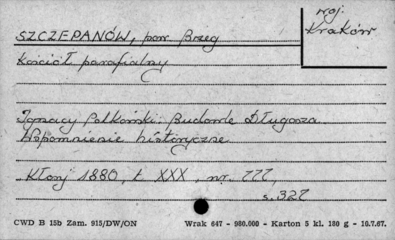 woj.
Kraków
SZCZEPANÓW, pow. Brzeg
Kościół parafialny
Ignacy Polkowski: Budowle Długosza.
Wspomnienie historyczne
Kłosy 1880, t. XXX, nr. 777,
s. 327
CWD B 15b Zam. 915/DW/ON Wrak 647 - 980.000 - Karton 5 kl. 180 g - 10.7.67.